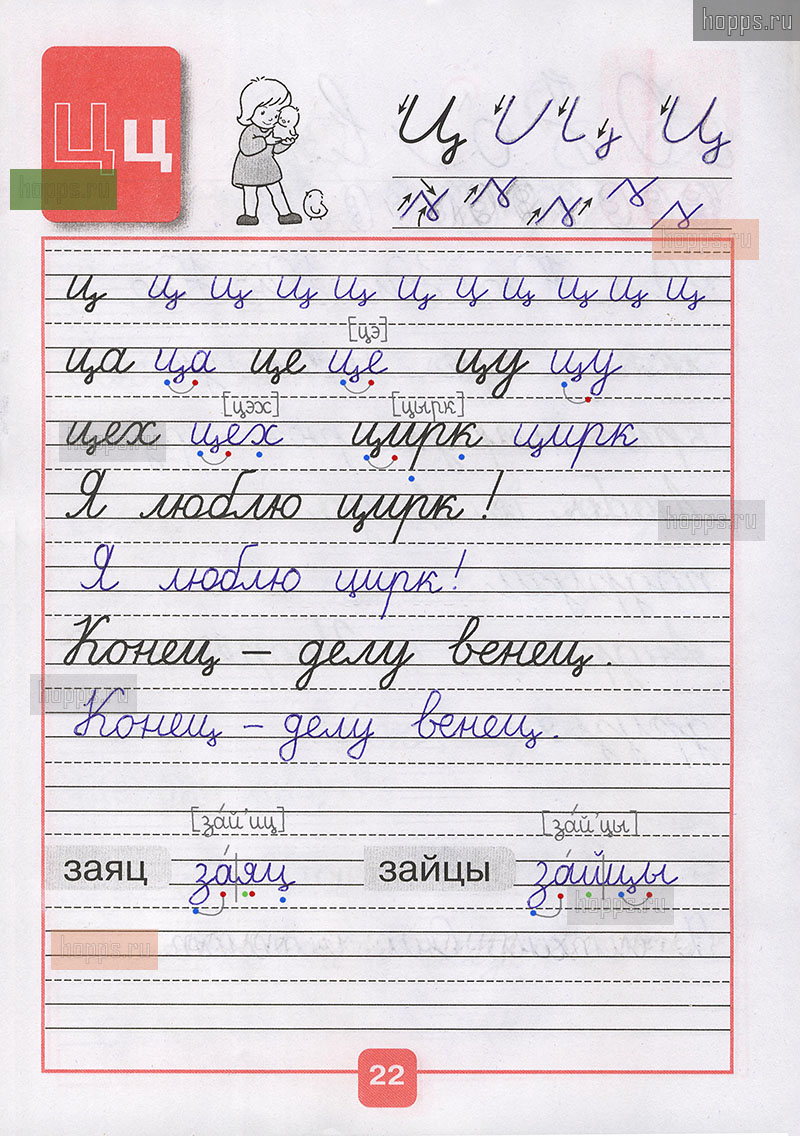 hopps.ru
Ц ц
hopps.ru
Ц Ц Ц
hopps.ru
ц ц ц ц ц ц ц ц ц ц ц
[цэ]
ца ца це це цу цу
[цэх] [цырк]
цех цех цирк цирк
hopps.ru
Я люблю цирк!
hopps.ru
Я люблю цирк!
Конец – делу венец.
hopps.ru
Конец – делу венец.
[за́й'иц] [за́й'цы]
заяц за́|яц зайцы за́й|цы
hopps.ru
hopps.ru
22